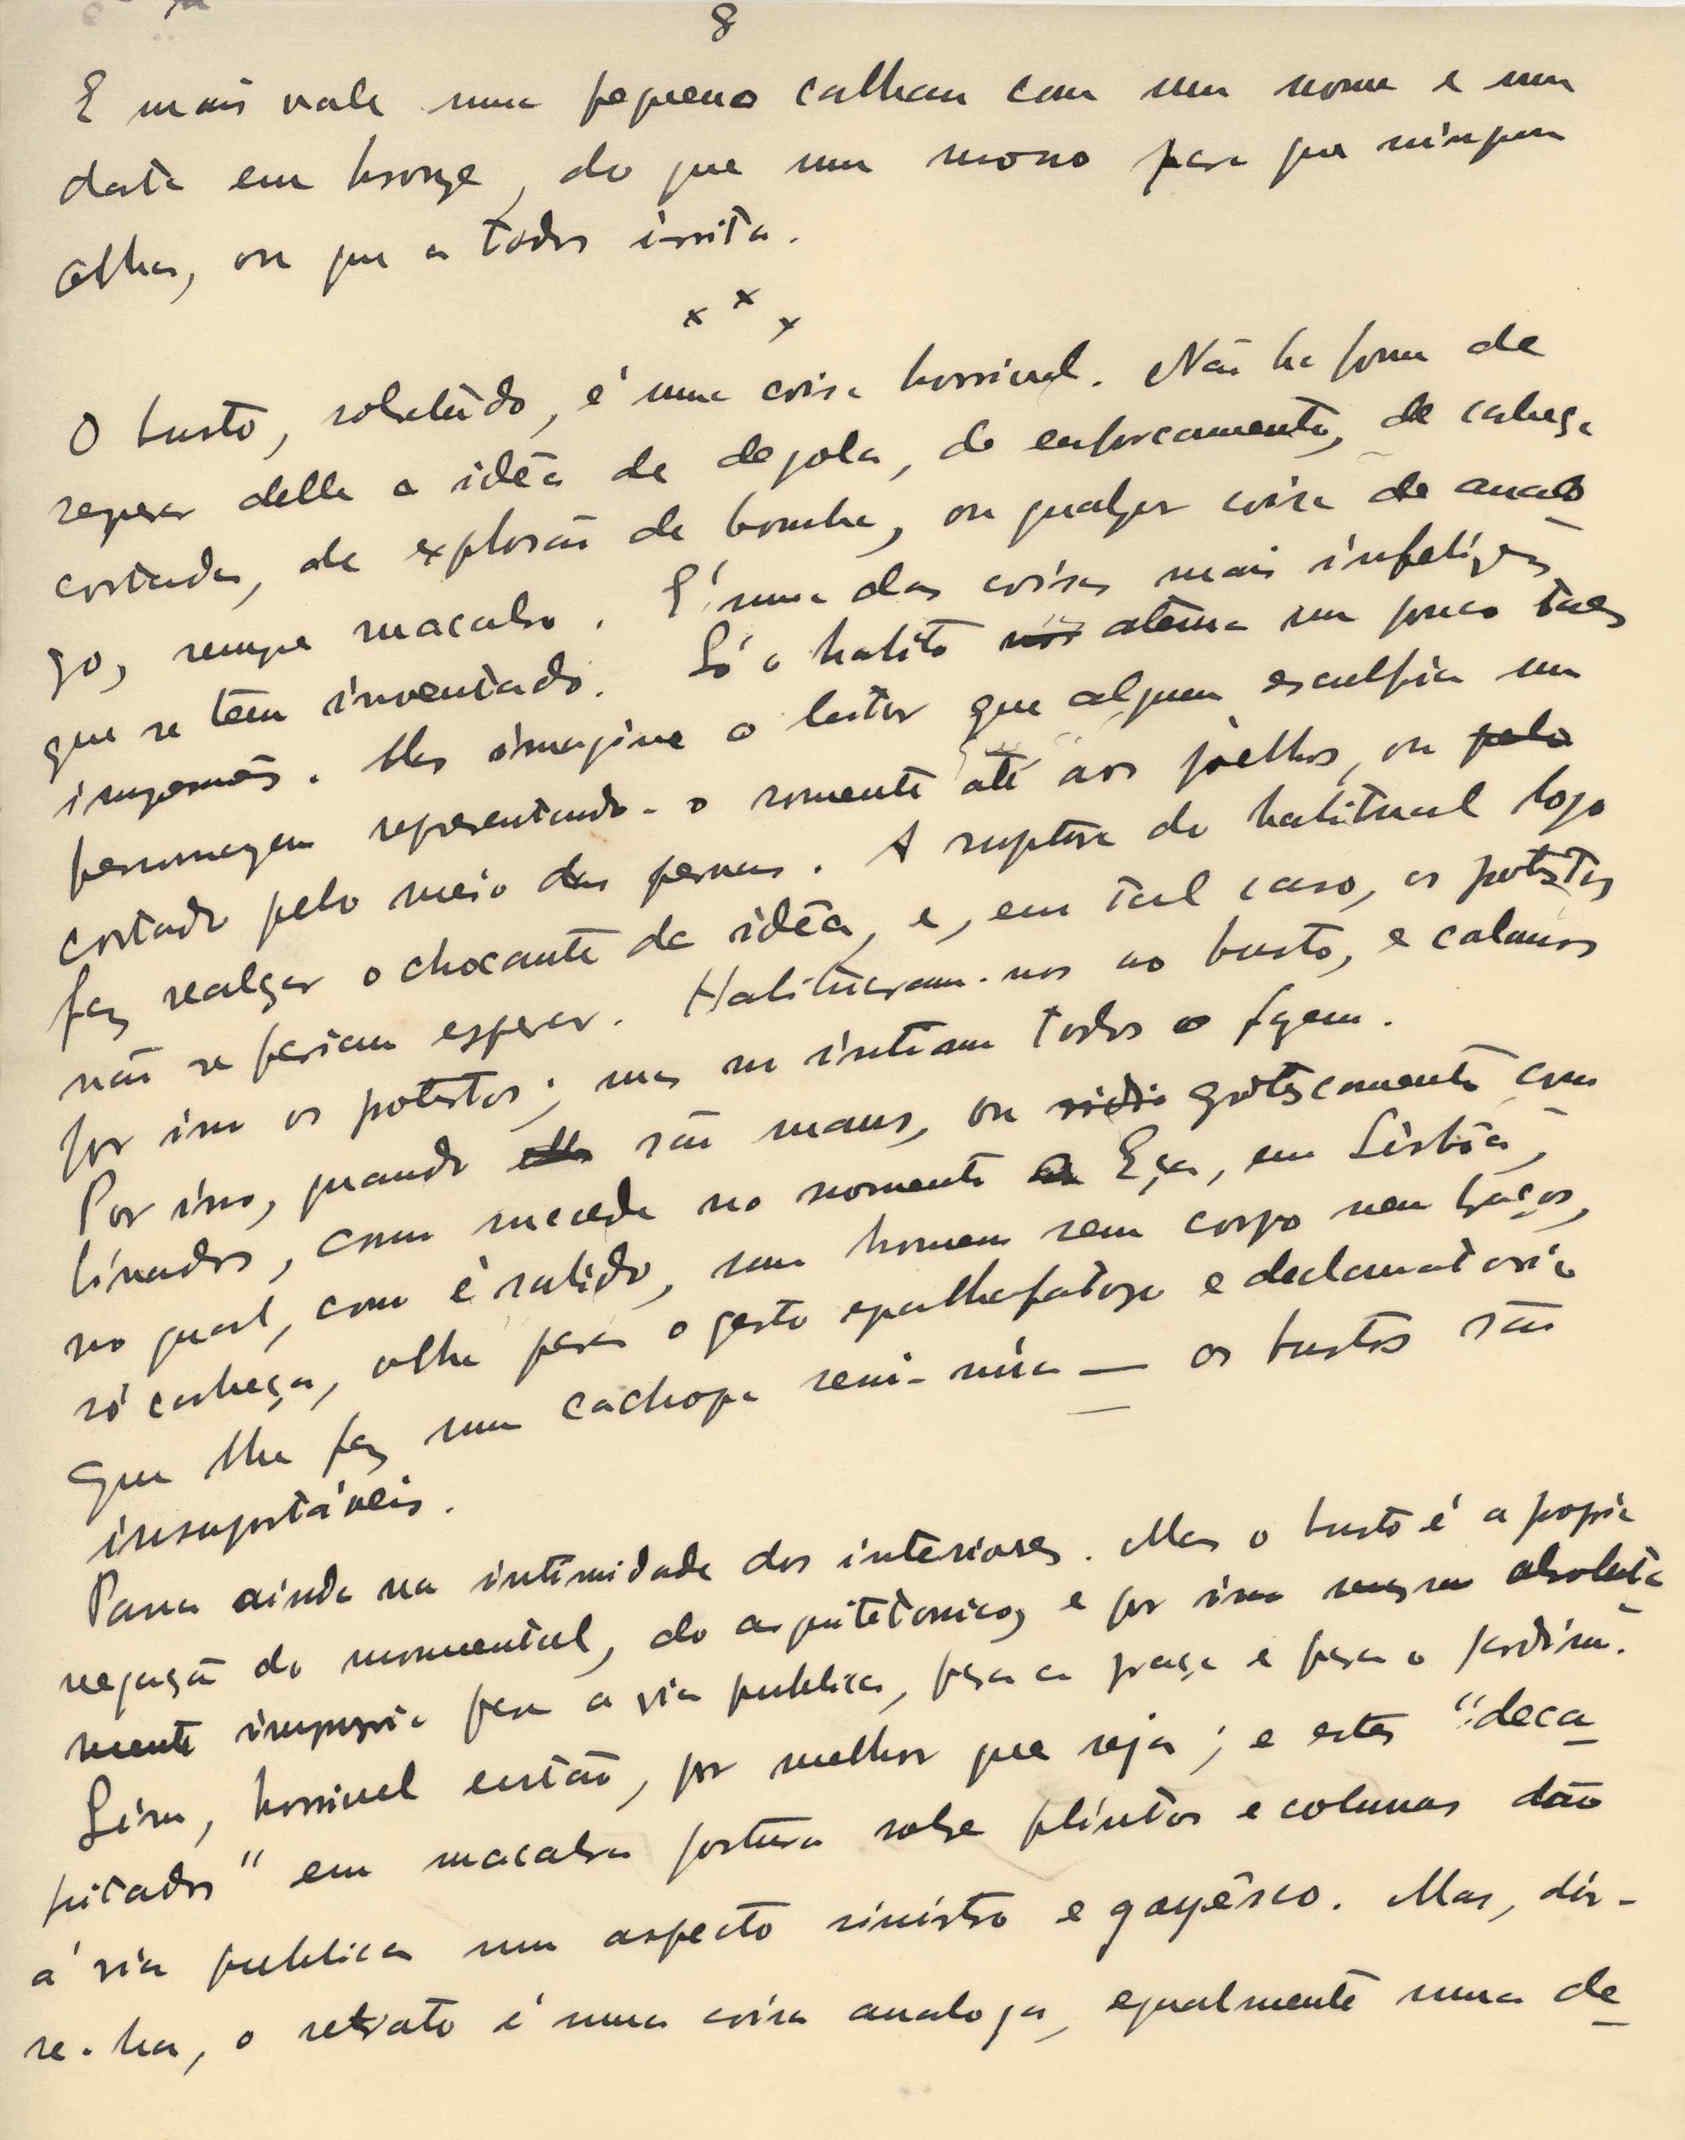 8
E mais vale um pequeno calhau com um nome e uma
data em bronze, do que um mono para que ninguem
olha, ou que a todos irrita.
x x x
O busto, sobretudo, é uma coisa horrivel. Não ha forma de
separar delle a idêa de degola, de enforcamento, de cabeça
cortada, de explosão de bomba, ou qualquer coisa de analo
go, sempre macabro. É uma das coisas mais infelizes
que se têm inventado. Só o habito nos atenua um pouco tal
impressão. Mas imagine o leitor que alguem esculpia um
personagem representando-o somente até aos joelhos, ou pelo
cortado pelo meio das pernas. A ruptura do habitual logo
faz realçar o chocante da idêa, e, em tal caso, os protestos
não se fariam esperar. Habituaram-nos ao busto, e calamos
por isso os protestos; mas no intimo todos o fazem.
Por isso, quando elles são maus, ou grotescamente com
binados, como sucede no monumento a Eça, em Lisbôa,
no qual, como é sabido, um homem sem corpo nem braços,
só cabeça, olha para o gesto espalhafatoso e declamatorio
que lhe faz uma cachopa semi-núa — os bustos são
insuportáveis.
Passa ainda na intimidade dos interiores. Mas o busto é a propria
negação do monumental, do arquitetonico, e por isso mesmo absoluta
mente impropria para a via publica, para a praça e para o jardim.
Sim, horrivel então, por melhor que seja; e estes "deca
pitados" em macabra postura sobre plintos e colunas dão
á via publica um aspecto sinistro e goyêsco. Mas, dir-
se-ha, o retrato é uma coisa analoga, egualmente uma de